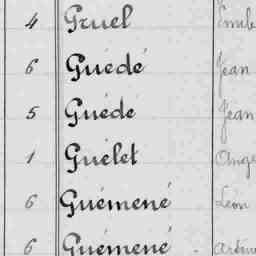 4 Gruel Emile
6 Guédé Jean
5 Guédé Jean
1 Guélet Ange
6 Guémené Léon
6 Guémené